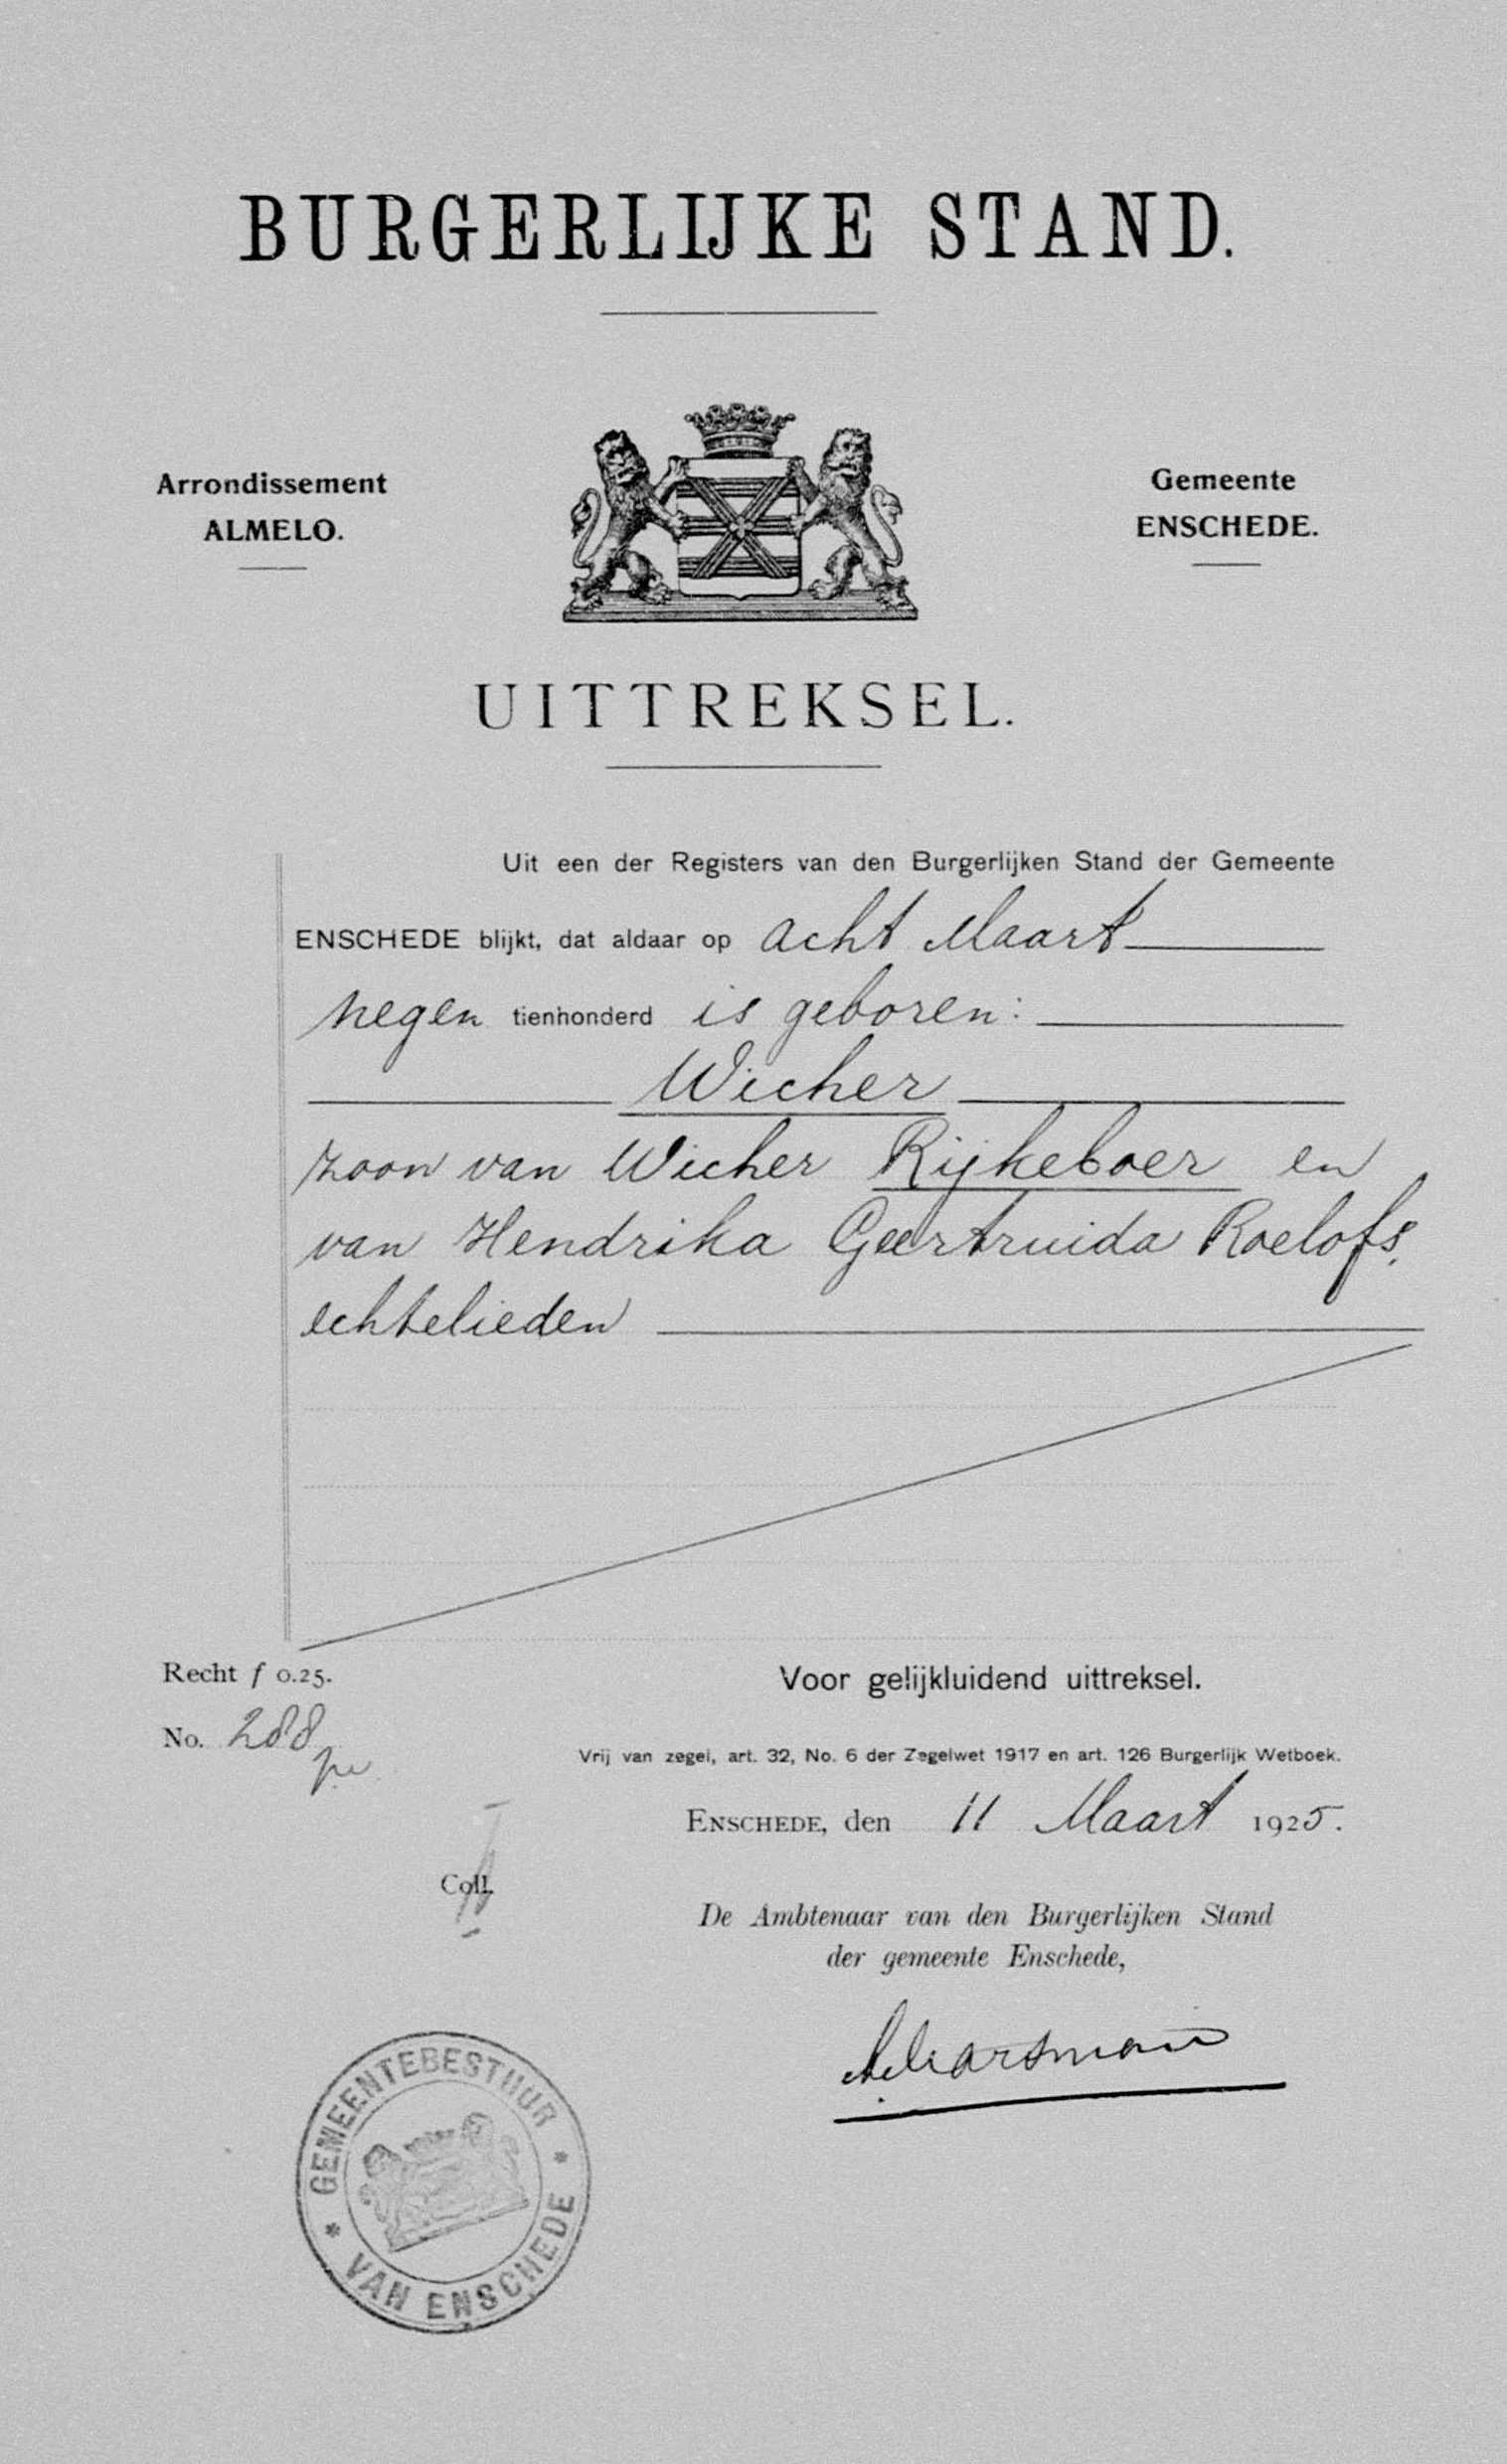 BURGERLIJKE STAND.
Arrondissement
ALMELO.
Gemeente
ENSCHEDE.
UITTREKSEL.
Uit een der Registers van den Burgerlijken Stand der Gemeente
ENSCHEDE blijkt, dat aldaar op acht Maart
negen tienhonderd is geboren:
Wicher
zoon van Wicher Rijkeboer en
van Hendrika Geertruida Roelofs,
echtelieden
Recht f 0.25.
No. 288
Voor gelijkluidend uittreksel.
Vrij van zegel, art. 32, No. 6 der Zegelwet 1917 en art. 126 Burgerlijk Wetboek.
ENSCHEDE, den 11 Maart 1925.
Coll.
De Ambtenaar van den Burgerlijken Stand
der gemeente Enschede,
GEMEENTEBESTUUR
VAN ENSCHEDE